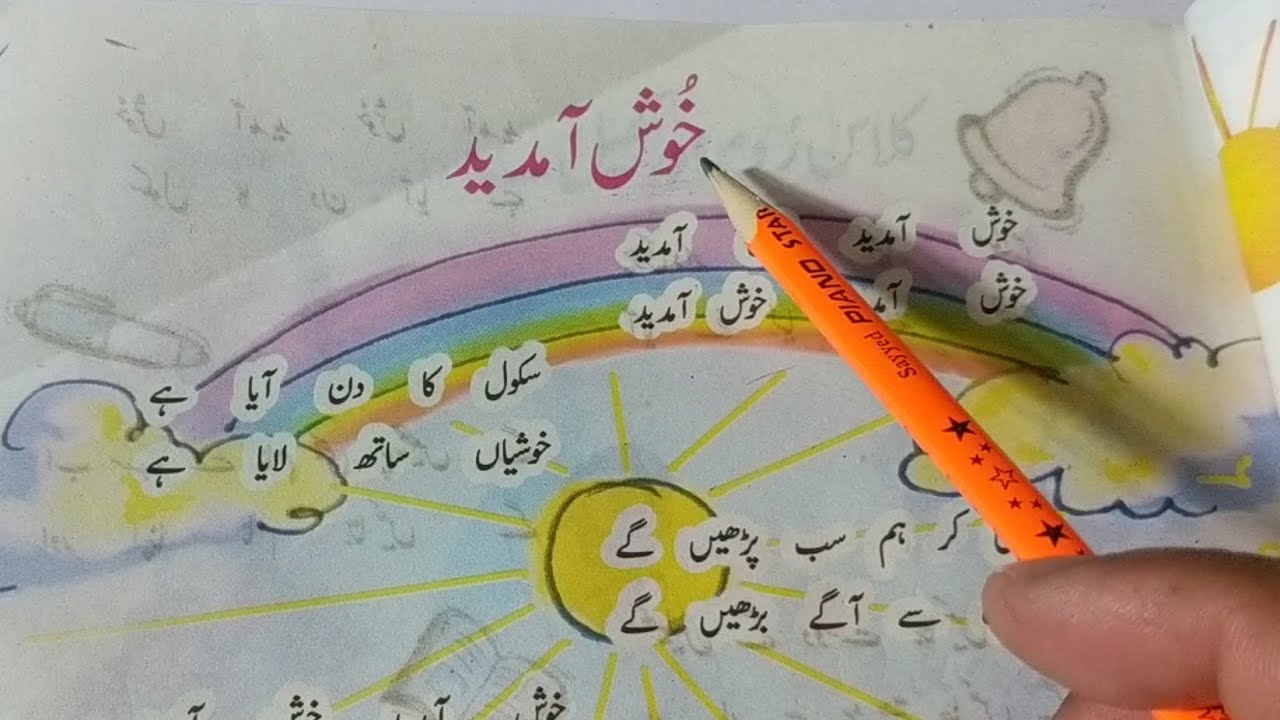 خُوش آمدید
خوش آمدید آمدید
خوش آمدید خوش آمدید
سکول کا دن آیا ہے
خوشیاں ساتھ لایا ہے
کر ہم سب پڑھیں گے
سے آگے بڑھیں گے
خوش خوش
Sayyed PIANO STAR